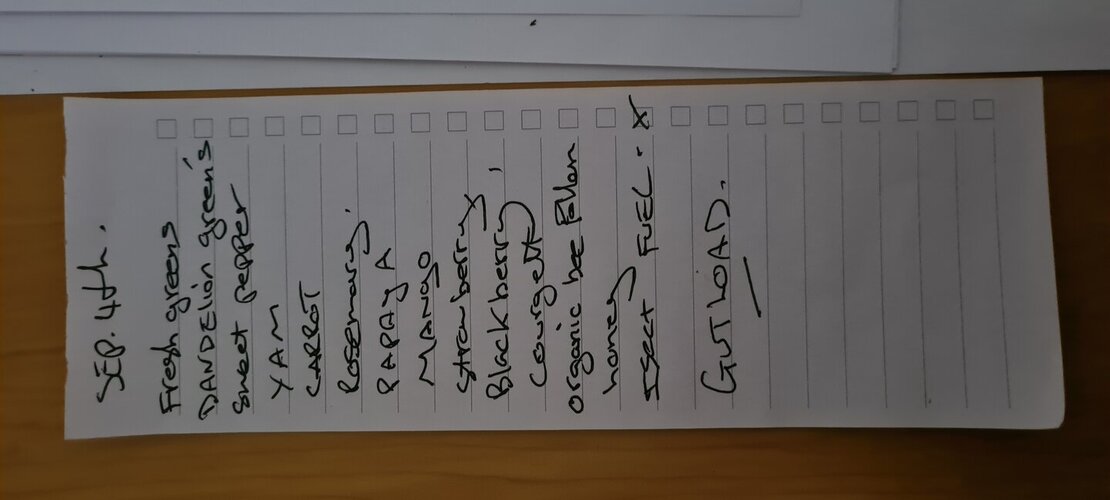 SEP. 4th.
Fresh greens
DANDElion green's
Sweet pepper
YAM
CARROT
Rosemary.
PAPAyA
MANGO
Strawberry
Blackberry,
Courgette
Organic bee Pollen
honey
ISect FUEL. X
GUTLOAD.